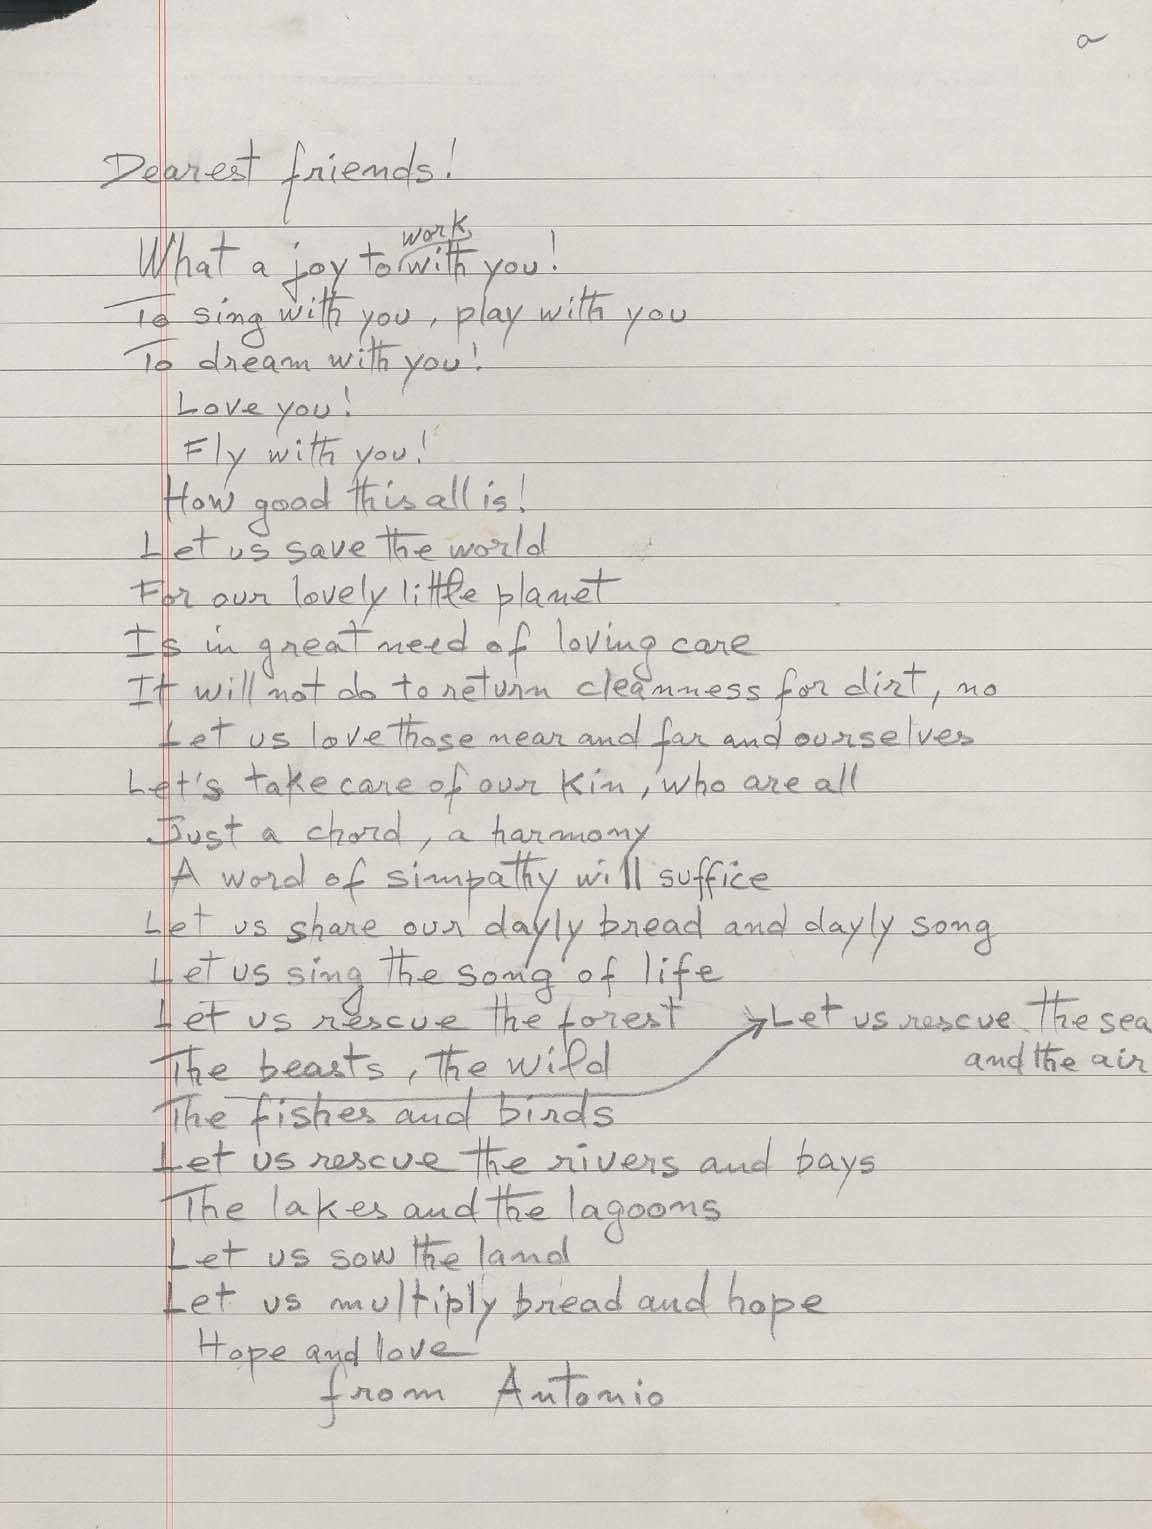 a
Dearest friends!
What a joy to work with you!
To sing with you, play with you
To dream with you!
Love you!
Fly with you!
How good this all is!
Let us save the world
For our lovely little planet
Is in great need of loving care
It will not do to return cleanness for dirt, no
Let us love those near and far and ourselves
Let's take care of our kin, who are all
Just a chord, a harmony
A word of simpathy will suffice
Let us share our dayly bread and dayly song
Let us sing the song of life
Let us rescue the forest
The beasts, the wild
The fishes and birds
Let us rescue the sea
and the air
Let us rescue the rivers and bays
The lakes and the lagoons
Let us sow the land
Let us multiply bread and hope
Hope and love
from Antonio